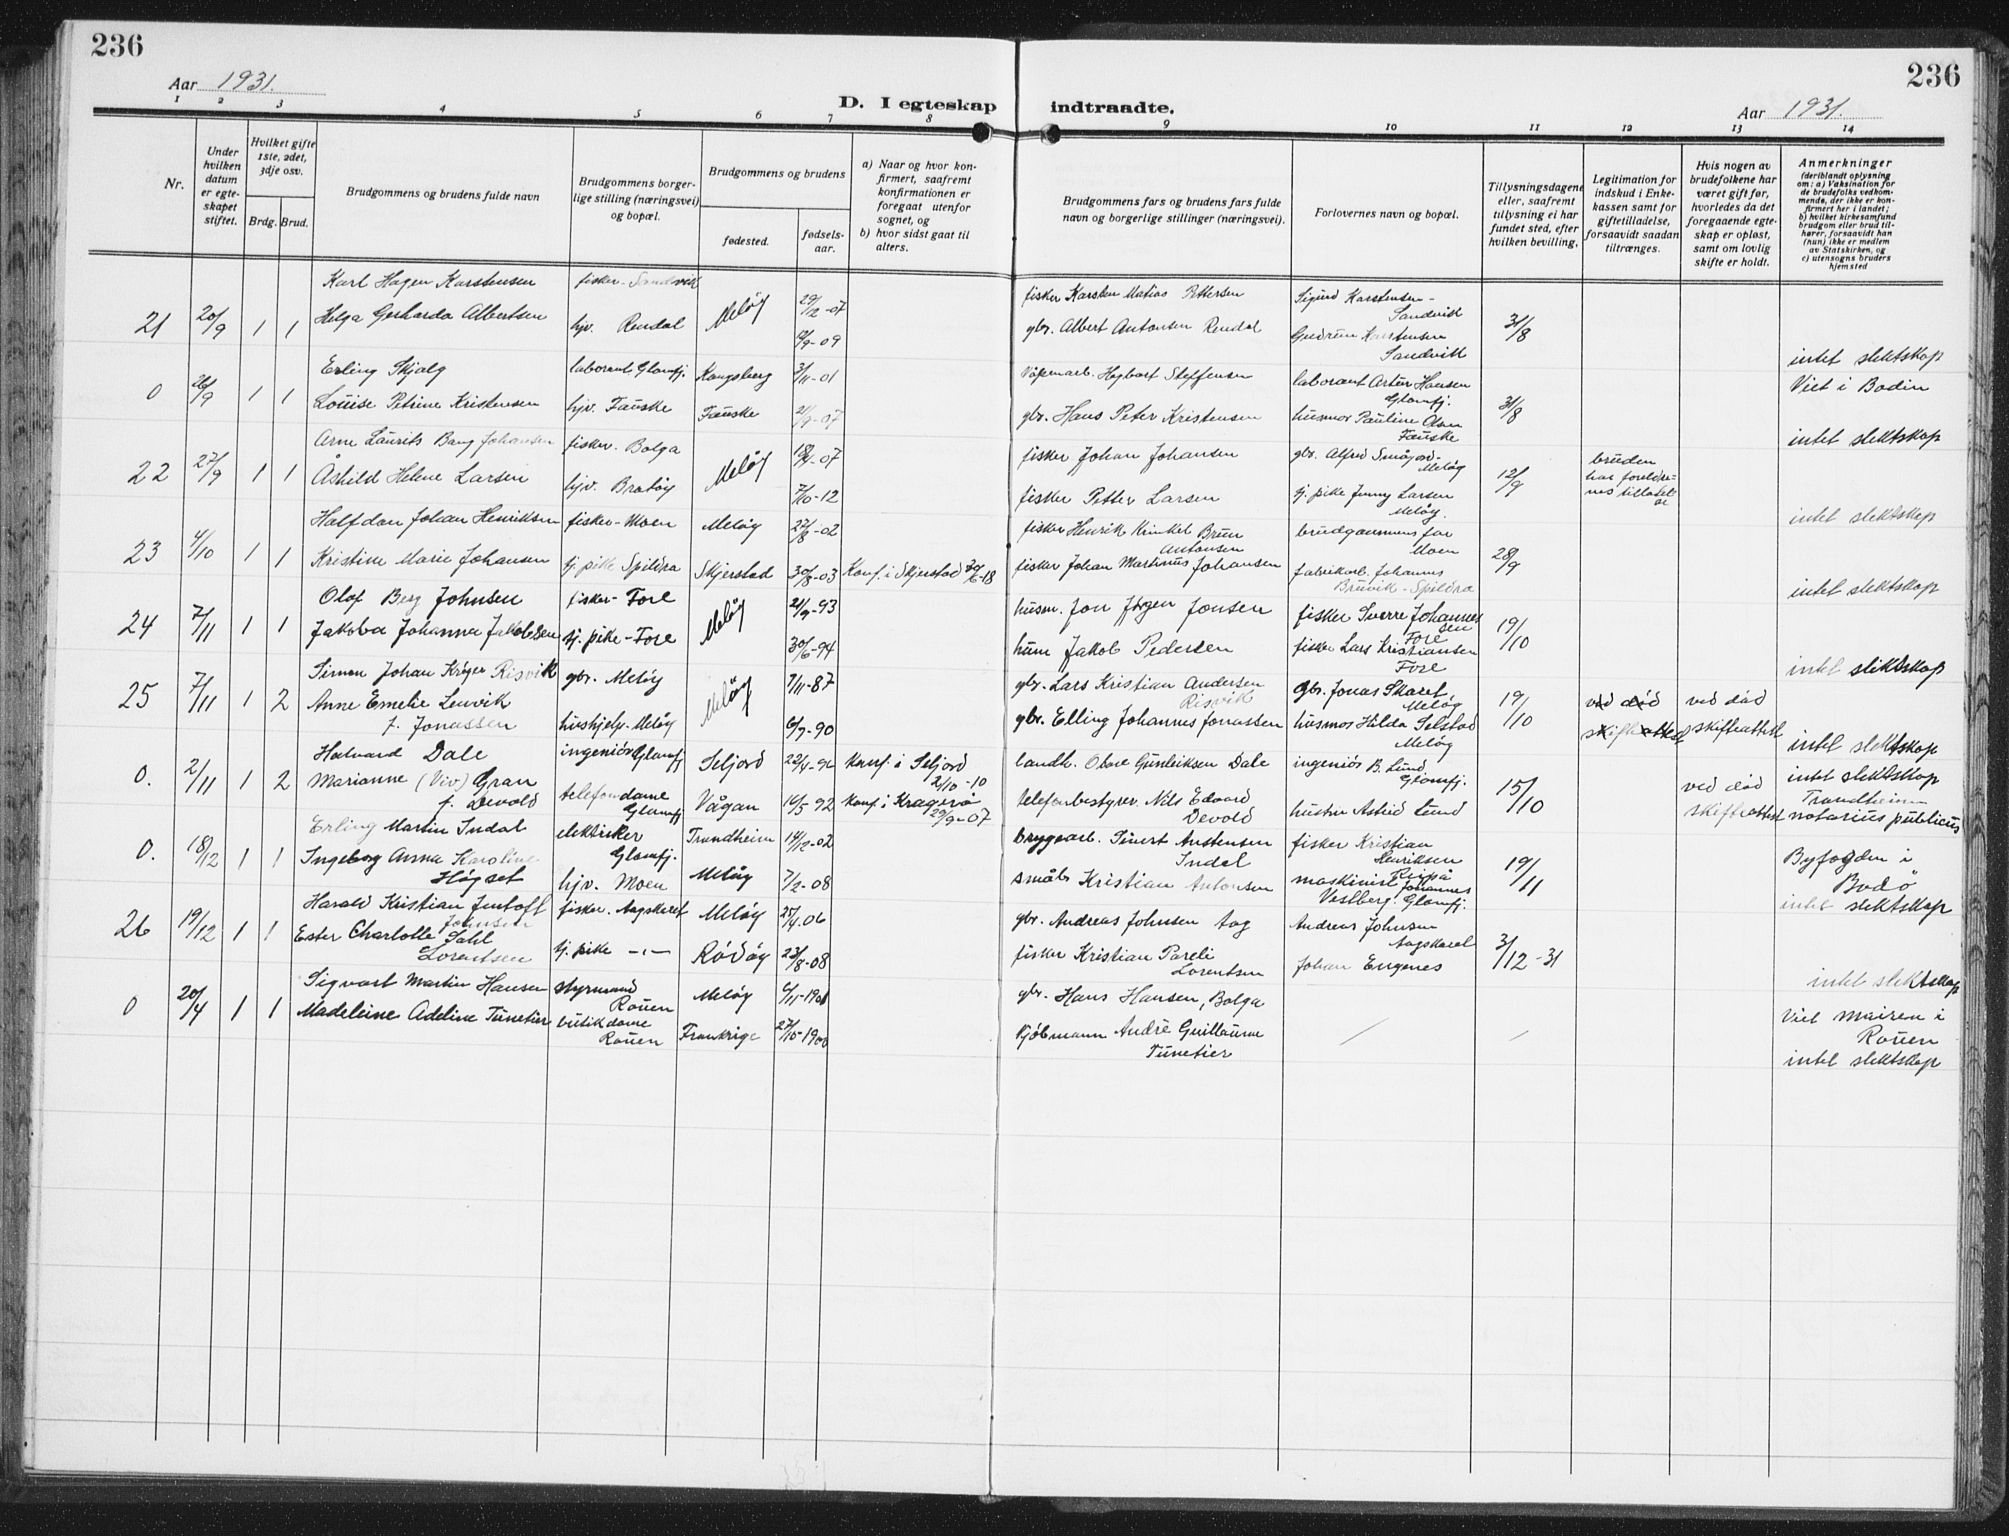 236
236
Aar 1931.
Aar 1931.
D. I egteskap indtraadte.
1 2 3 4 5 6 7 8 9 10 11 12 13 14
Nr.
Under hvilken datum er egte- skapet stiftet.
Hvilket gifte 1ste, 2det, 3dje osv.
Brdg. Brud.
Brudgommens og brudens fulde navn
Brudgommens borger- lige stilling (næringsvei) og bopæl.
Brudgommens og brudens
fødested.
fødsels- aar.
a) Naar og hvor kon- firmert, saafremt konfirmationen er foregaat utenfor sognet, og
b) hvor sidst gaat til alters.
Brudgommens fars og brudens fars fulde navn og borgerlige stillinger (næringsvei).
Forlovernes navn og bopæl.
Tillysningsdagene eller, saafremt tillysning ei har fundet sted, efter hvilken bevilling.
Legitimation for indskud i Enke- kassen samt for giftetilladelse, forsaavidt saadan tiltrænges.
Hvis nogen av brudefolkene har været gift før, hvorledes da det foregaaende egte- skap er opløst, samt om lovlig skifte er holdt.
Anmerkninger
(deriblandt oplysning om: a) Vaksination for de brudefolks vedkom- mende, der ikke er kon- firmert her i landet;
b) hvilket kirkesamfund brudgom eller brud til- hører, forsaavidt han (hun) ikke er medlem av Statskirken, og
c) utensogns bruders hjemsted
Karl Hagen Karstensen fisker - Sandvik 29/12-07 fisker Karsten Matias Pettersen Sigurd Karstensen - Sandvik
21 20/9 1 1 Meløy 31/8
Helga Gerharda Albertsen hjv. Rendal -09 gbr. Albert Antonsen Rendal Gudrun Karstensen Sandvik
intet slektskap
Erling Skjalg laborant Glomfj. Kongsberg 3/11-01 Våpenarb. Hagbart Steffensen laborant Artur Hansen Glomfj. Viet i Bodin
0 26/9 1 1 31/8
Louise Petrine Kristensen hjv. Fauske Fauske 21/9-07 gbr. Hans Peter Kristensen husmor Pauline Olsen Fauske
intet slektskap
Arne Laurits Bang Johansen fisker. Bolga 18/4-07 fisker Johan Johansen gbr. Alfred Småjord - Meløy
22 27/9 1 1 Meløy 12/9 bruden har foreldre- nes tilladel- se
Åshild Helene Larsen hjv. Bratøy 7/10-12 fisker Petter Larsen tj. pike Jenny Larsen Meløy.
intet slektskap
Halfdan Johan Henriksen fisker - Moen Meløy 27/8-02 fisker Henrik Krinkel Brun Antonsen brudgommens far Moen
23 4/10 1 1 28/9
Kristine Marie Johansen tj. pike Spildra Skjerstad 30/8-03 Konf. i Skjerstad 30/6-18 fisker Johan Martinus Johansen fabrikarb. Johannes Bruvik - Spildra
intet slektskap
Olaf Berg Johnsen fisker - Fore 21/9-93 husm. Jon Jørgen Jonsen fisker Sverre Johannes sen Fore
24 7/11 1 1 Meløy 19/10
Jakoba Johanna Jakobsen tj. pike - Fore 30/6-94 husm Jakob Pedersen fisker Lars Kristiansen Fore
intet slektskap
Simon Johan Krøger Risvik gbr. Meløy 7/11-87 gbr. Lars Kristian Andersen Risvik gbr. Jonas Skaret, Meløy
25 7/11 1 2 Meløy 19/10 ved død ved død
Anne Emelie Leuvik f. Jonassen hushjelp - Meløy 6/7-90 gbr. Elling Johannes Jonassen husmor Hilda Selstad Meløy skifteattest skifteattest
intet slektskap
Halvard Dale ingeniør Glomfj Seljord 22/4-96 Konf. i Seljord 2/10-10 landh. Olave Gunleiksen Dale ingeniør B. Lund, Glomfj. intet slektskap
0. 2/11 1 2 15/10 ved død skifteattest
Marianne (Viv) Gran f. Devold telefondame Glomfj Vågan 16/5 92 Konf. i Kragerø 29/9-07 telefonbestyrer. Nils Edvard Devold hustru Astrid Lund Trondheim notarius publicus
Erling Martin Indal elektriker Glomfj. Trondheim 14/12-02 bryggearb. Sivert Austensen Indal fisker Kristian Henriksen Reipå Byfogden i Bodø
0. 18/12 1 1 19/11
Ingeborg Anna Karoline Høgset hjv. Moen Meløy 7/2-08 småb Kristian Antonsen maskinist Johannes Vestberg. Glomfj.
intet slektskap
Harald Kristian Jentoft Johnsen fisker. Aagskaret Meløy 25/4 06 gbr. Andreas Johnsen Aag Andreas Johnsen Aagskaret
26 19/12 1 1 3/12-31
Ester Charlotte Dahl Lorentsen tj. pike -"- Rødøy 23/8-08 fisker Kristian Pareli Lorentsen Johan Engenes
intet slektskap
Sigvart Martin Hansen styrmand Rouen Meløy 6/11-1901 gbr. Hans Hansen, Bolga Viet Mairen i Rouen
0 20/4 1 1
Madeleine Adeline Tunetier butikdame Rouen Frankrige 27/10-1900 Kjøbmann André Guillaume Tunetier
intet slektskap